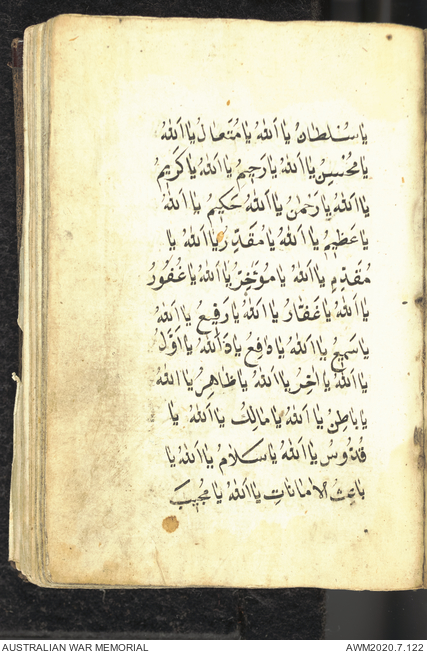 يا سُلطان يا اَللهُ يا مُتَعالُ يا اَللهُ
يا مُحْسِنُ يا اَللهُ يا رَحيمُ يا اَللهُ يا كَريمُ
يا اَللهُ يا رَحْمنُ يا اَللهُ حَكيمُ يا اَللهُ
يا عَظيمُ يا اَللهُ يا مُقَدِّرُ يا اَللهُ يا
مُقَدِّمِ يا اَللهُ يا مُؤَخِّرُ يا اَللهُ يا غَفُورُ
يا اَللهُ يا غَفّارُ يا اَللهُ يا رَفيعُ يا اَللهُ
يا سَميعُ يا اَللهُ يا دافِعُ يا اَللهُ يا اَوَّلُ
يا اَللهُ يا اخِرُ يا اَللهُ يا ظاهِرُ يا اللهُ
يا باطِنُ يا اَللهُ يا مالِكُ يا اَللهُ يا
قُدُّوسُ يا اَللهُ يا سَلامُ يا اَللهُ يا
الامانات يا اَللهُ يا مُجيبُ
AUSTRALIAN WAR MEMORIAL
AWM2020.7.122